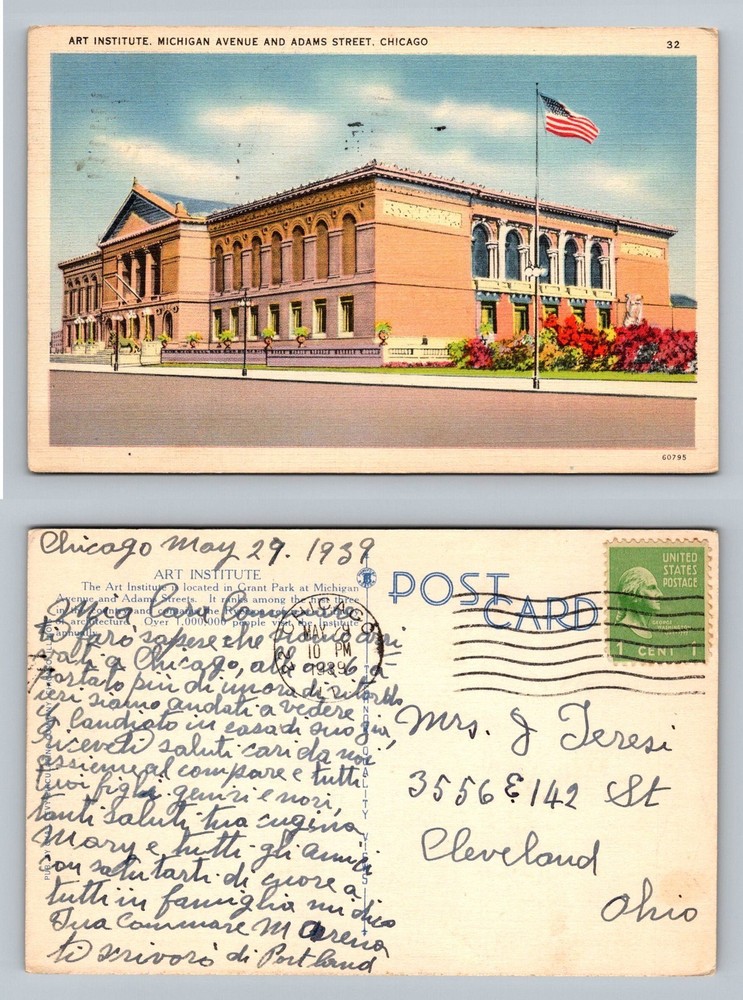 ART INSTITUTE, MICHIGAN AVENUE AND ADAMS STREET, CHICAGO
32
60795
Chicago May 29. 1939
ART INSTITUTE
The Art Institute is located in Grant Park at Michigan
Avenue and Adams Streets. It ranks among the first three
in the country and
of architecture. Over 1,000,000 people visit the Institute
annually.
Mia Cara Commare
ti faro sapese che siamo arri
vati a Chicago, alle ore 6 a
portato piu di un ora di ritardo
ieri siamo andati a vedere
landiato in casa di suo zia,
riceveti saluti cari da noi
assieme al compare e tutti
tuoi figli generi e nori,
tanti saluti tua cugina
Mary e tutti gli amici
con salutarti di cuore a
tutti in famiglia mi dico
Tua commare M
ti scrivoro di Portland
POST CARD
CHICAGO
MAY 29
10 PM
1939
UNITED
STATES
POSTAGE
GEORGE
WASHINGTON
1 CENT 1
Mrs. J Teresi
3556 E 142 St
Cleveland
Ohio